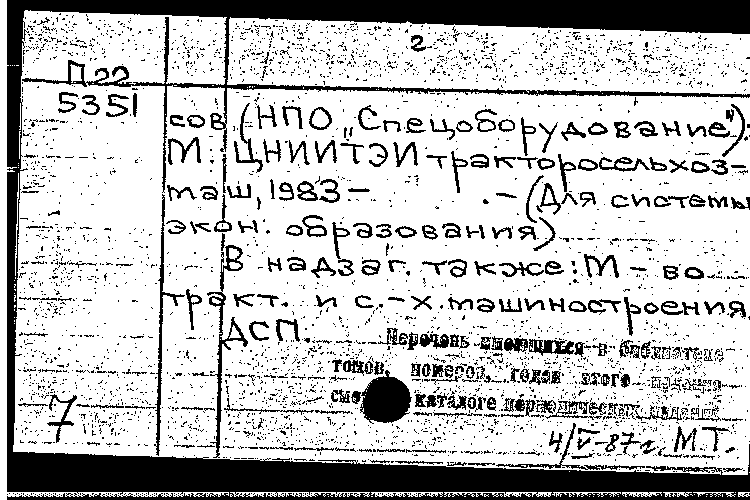 2
П22
5351
сов (НПО „Спецоборудование"):
М.: ЦНИИТЭИ тракторосельхоз-
маш, 1983 - . - (Для системы
экон. образования)
В надзаг. также: М-во
тракт. и с.-х. машиностроения.
ДСП.
Перечень имеющихся в библиотеке
томов, номеров, годов этого издания
смотри в каталоге периодических изданий
7
4/V-87г. М.Т.